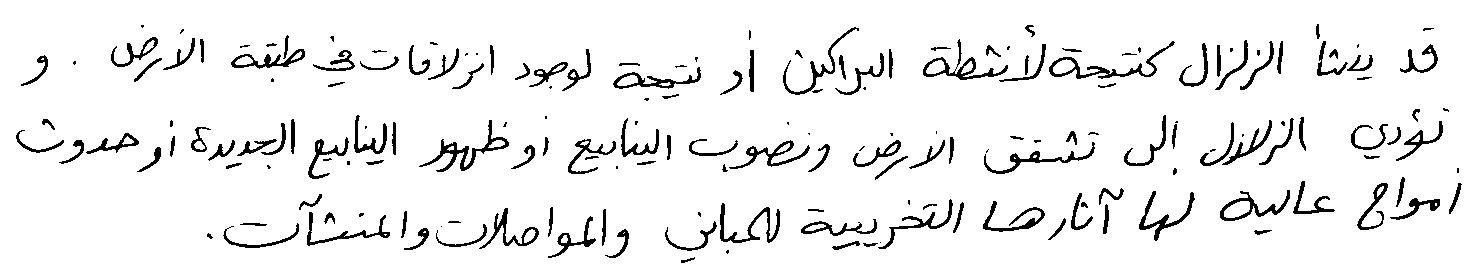 قد ينشأ الزلزال كنتيجة لأنشطة البراكين أو نتيجة لوجود انزلاقات في طبقة الأرض . و
تؤدي الزلازل إلى تشقق الأرض ونضوب الينابيع أو ظهور الينابيع الجديدة أو حدوث
أمواج عالية لها آثارها التخريبية للمباني والمواصلات والمنشآت .